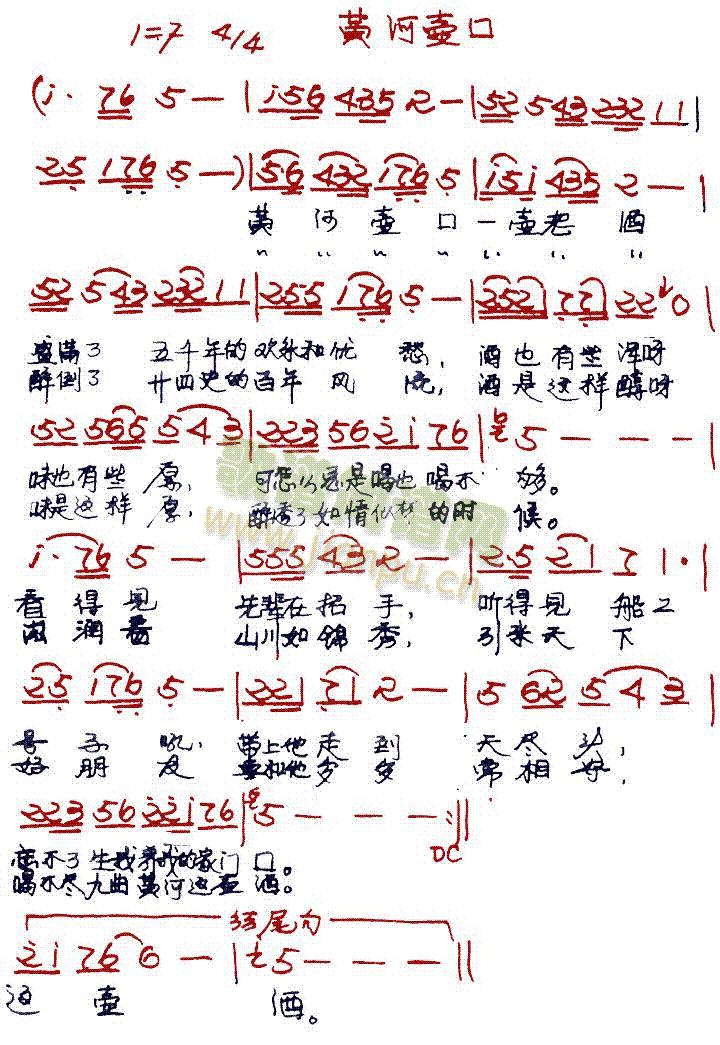 1=7 4/4 黄河壶口
(i· 76 5 — | i56 435 2 — | 52 543 232 11 |
25 176 5 —) | 56 432 176 5 | i5i 435 2 — |
黄 河 壶 口 一壶老 酒
〃 〃 〃 〃 〃 〃 〃
52 543 232 11 | 255 176 5 — | 2521 771 22 0 |
盛满了 五千年的欢乐和忧 愁, 酒也有些浑呀
醉倒了 廿四史的百年 风 流, 酒是这样醇呀
52 565 543 | 223 56 2i 76 | 5 — — — |
味也有些 厚, 可怎么总是喝也喝不 够。
味是这样 厚, 醉透了如情似梦的时 候。
歌谱简谱网
www.jianpu.cn
i· 76 5 — | 555 43 2 — | 25 21 7 1· |
看 得见 先辈在招 手, 听得见 船工
山川如锦 秀, 引来天 下
25 176 5 — | 221 71 2 — | 5 62 5 4 3 |
号 子 吼, 带上他走 到 天尽 头,
好 朋 友 要和他岁 岁 常相 好,
223 56 22i 76 | 5 — — — :||
DC
忘不了生我养我的家门 口。
喝不尽九曲黄河这壶 酒。
结尾句
2i 76 6 — | 7 5 — — — ||
这 壶 酒。